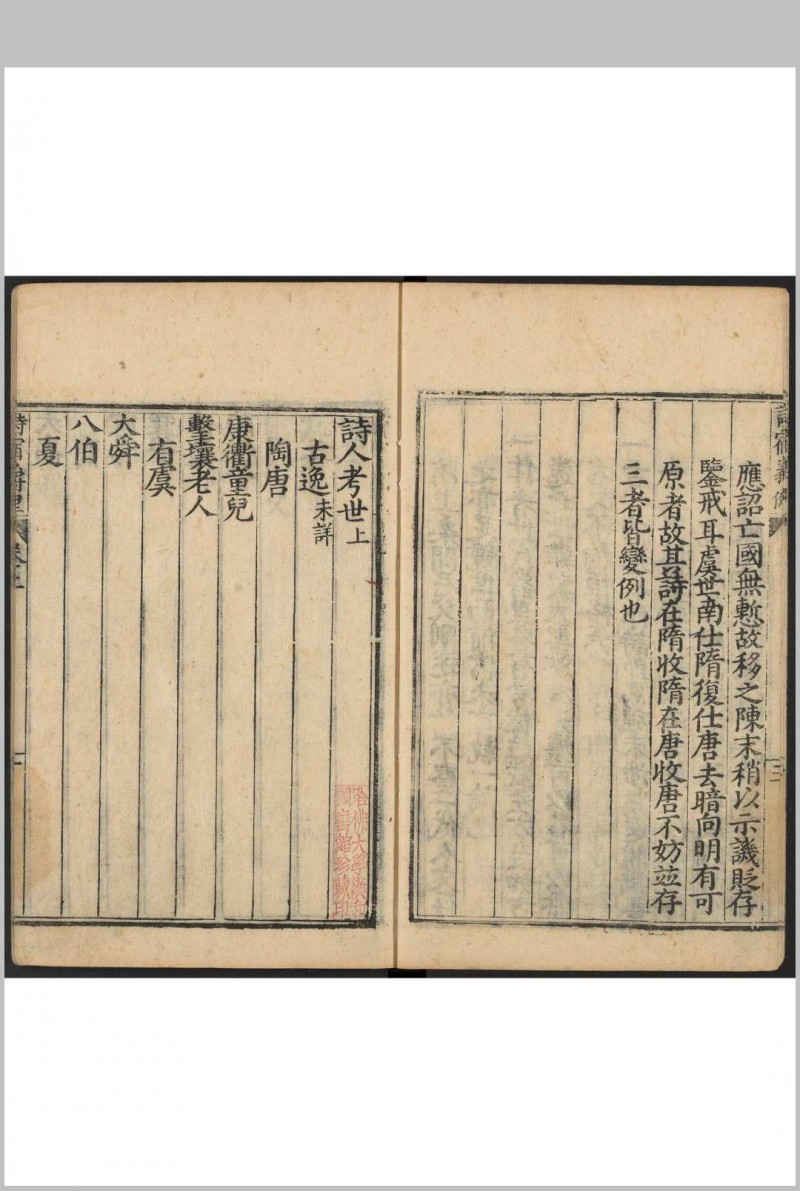 應詔亡國無慙故移之陳末稍以示譏貶存
鑒戒耳虞世南仕隋復仕唐去暗向明有可
原者故其詩在隋收隋在唐收唐不妨竝存
三者皆變例也
詩宿義例
三
詩人考世上
古逸未詳
陶唐
康衢童兒
擊壤老人
有虞
大舜
八伯
夏
哈佛大學漢和
圖書館珍藏印